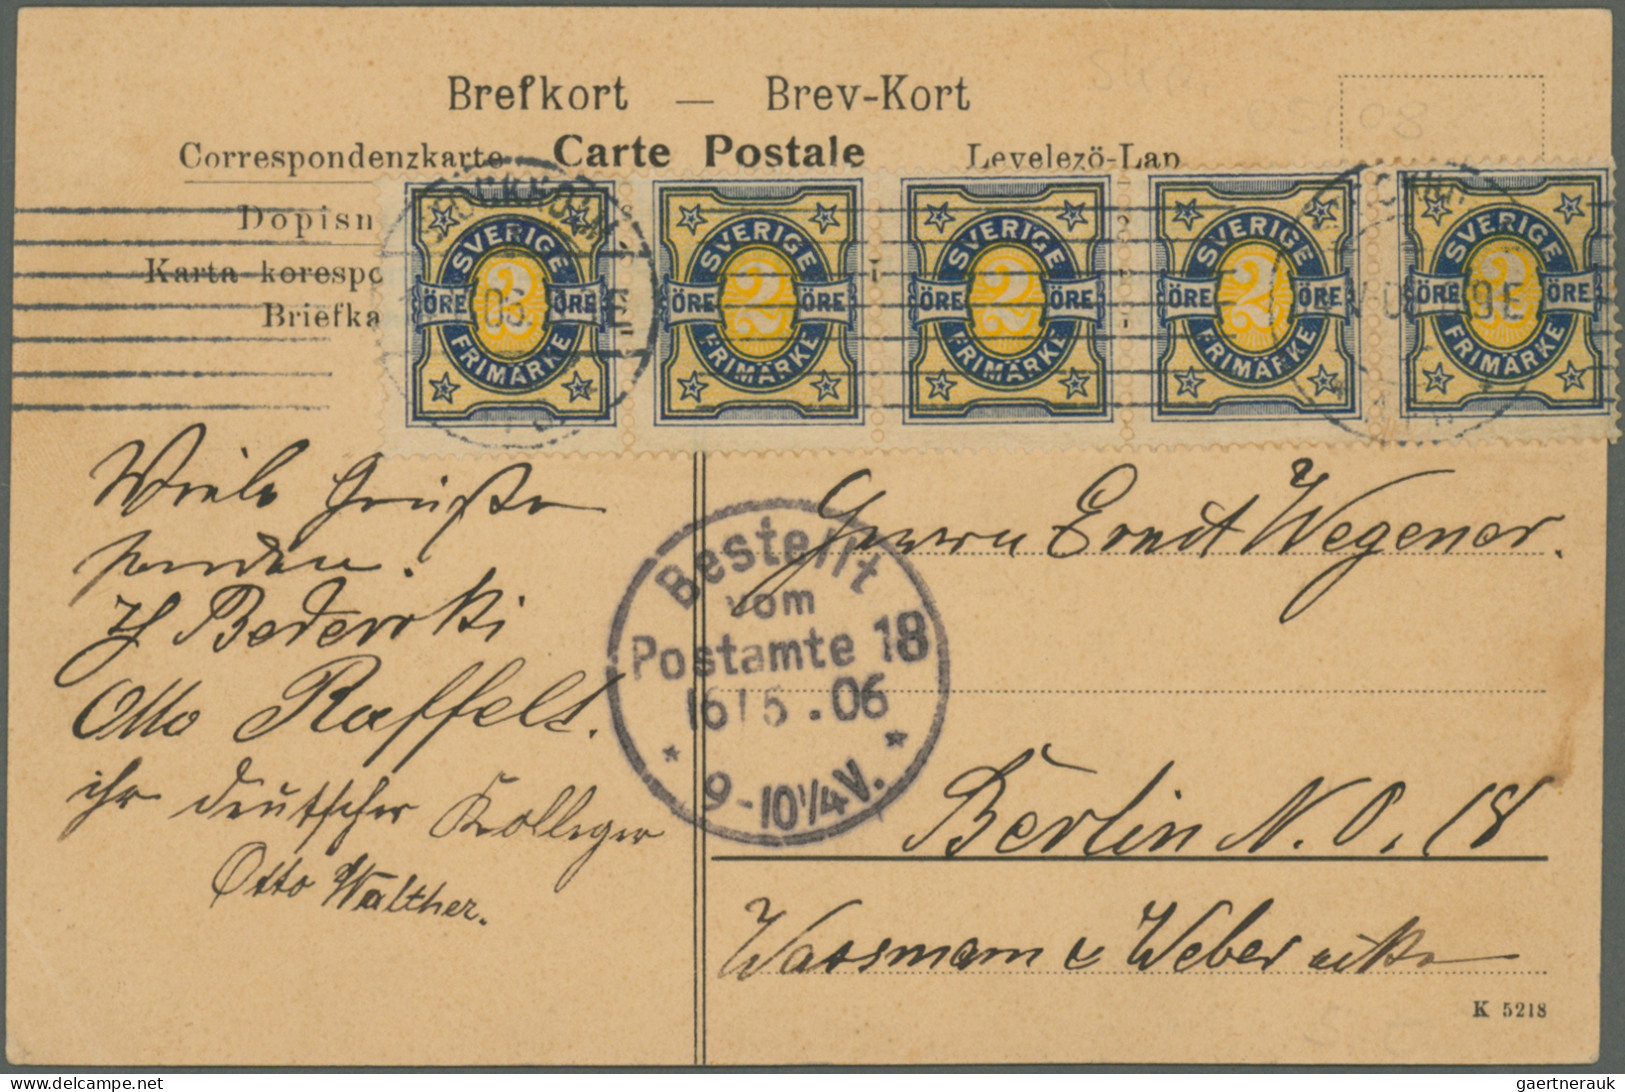 Brefkort — Brev-Kort
Correspondenzkarte Carte Postale Levelezö-Lap
Dopisn
Karta korespo
Briefka
STOCKHOLM
SVERIGE
2
ÖRE ÖRE
FRIMÄRKE
SVERIGE
2
ÖRE ÖRE
FRIMÄRKE
SVERIGE
2
ÖRE ÖRE
FRIMÄRKE
SVERIGE
2
ÖRE ÖRE
FRIMÄRKE
SVERIGE
2
ÖRE ÖRE
FRIMÄRKE
Viele Grüße
senden.
Otto Raffelt.
ihr deutscher Kolleger
Otto Walther.
Bestellt
vom
Postamte 18
16/5.06
9-10¼V.
Herrn Ernst Wegener.
Berlin N.O. 18
Wassmann u Weber
K 5218
gaertnerauk